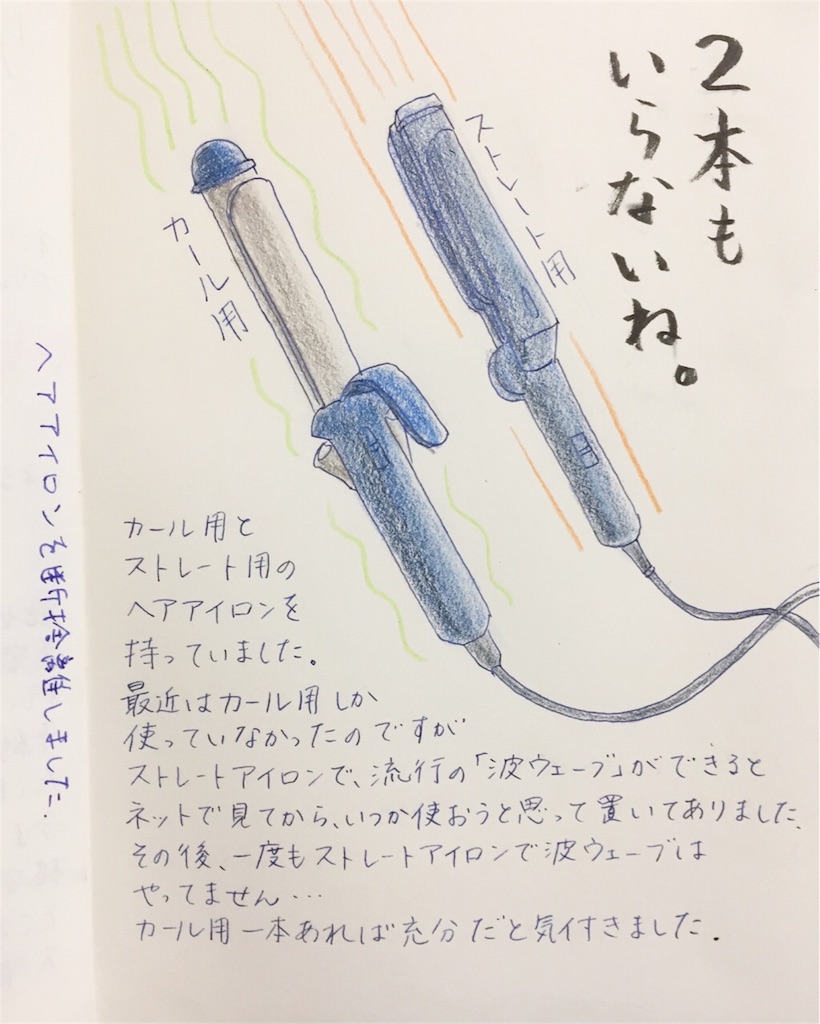 2本も
いらないね。
ストレート用
カール用
カール用と
ストレート用の
ヘアアイロンを
持っていました。
最近はカール用しか
使っていなかったのですが
ストレートアイロンで、流行の「波ウェーブ」ができると
ネットで見てから、いつか使おうと思って置いてありました。
その後、一度もストレートアイロンで波ウェーブは
やってません…
カール用一本あれば充分だと気付きました.
ヘアアイロンを断捨離しました.